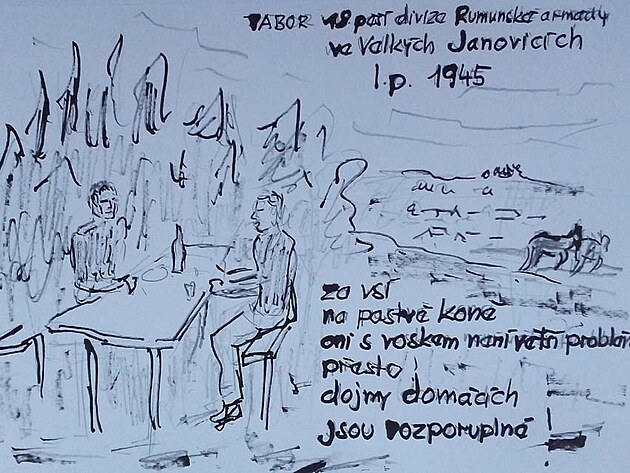 TABOR 18 peší divize Rumunské armády
ve Valkých Janovicích
l.p. 1945
za vsí
na pastvě koně
oni s voskem není větší problém
přesto!
dojmy domácích
jsou rozporuplné!